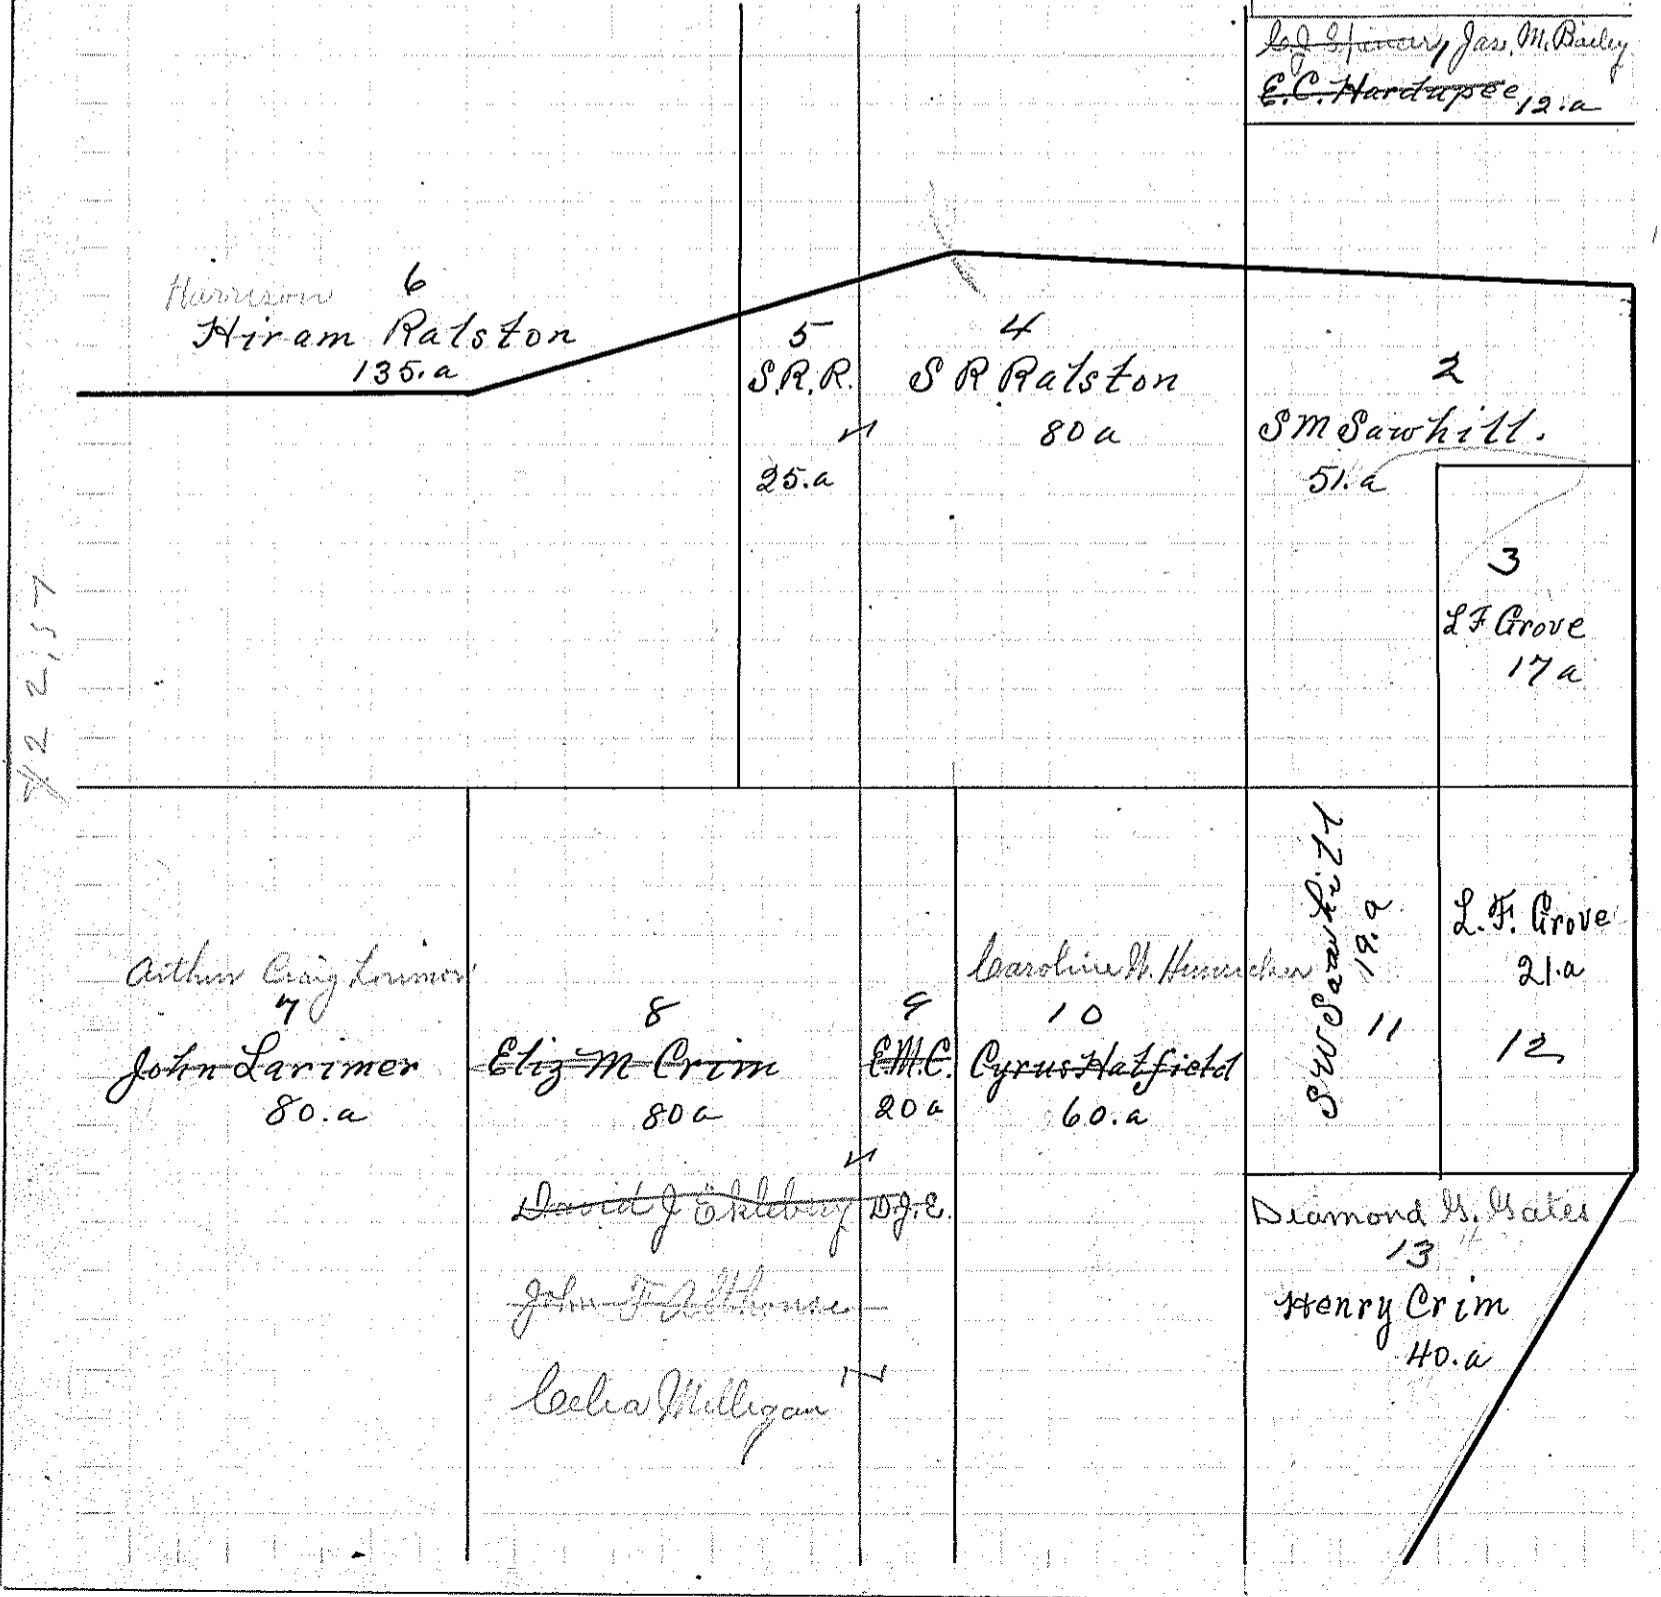 Jas. M. Bailey
E.C. Hardupee 12.a
Harrison 6
Hiram Ralston
135.a
5
S.R.R.
25.a
4
S R Ralston
80 a
2
S M Sawhill.
51.a
3
L F Grove
17 a
22,57
Arthur Craig Lorimor
7
John Larimer
80.a
8
Eliz M Crim
80 a
David J Ekleberry D.J.E.
John F Althouse
Celia Milligan
9
E.M.C.
20 a
Caroline
10
Cyrus Hatfield
60.a
S W Sawhill
19.a
11
L.F. Grove
21.a
12
Diamond G. Gates
13
Henry Crim
40.a